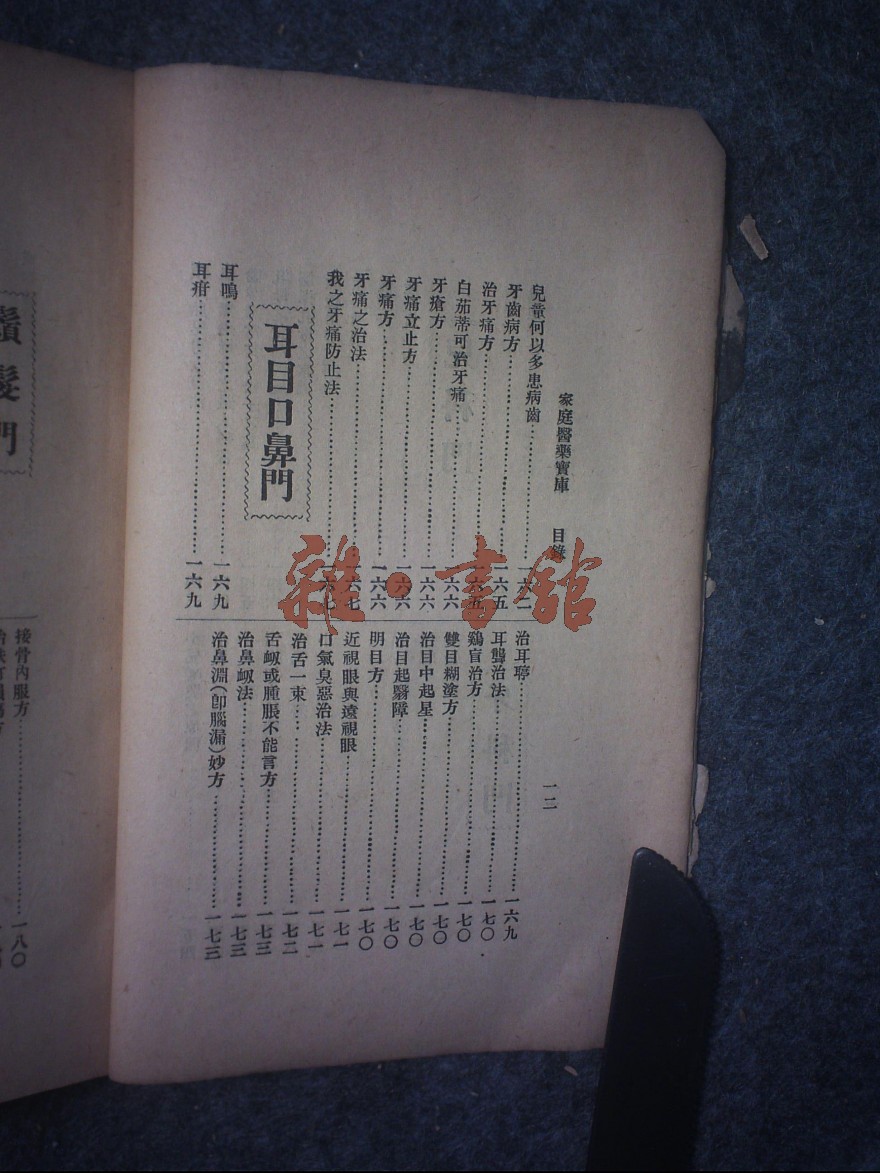 家庭醫藥寶庫 目錄 一二
兒童何以多患病齒 一六二
牙齒病方 一六五
治牙痛方 一六五
白茄蒂可治牙痛 一六六
牙瘡方 一六六
牙痛立止方 一六六
牙痛方 一六六
牙痛之治法 一六七
我之牙痛防止法 一六七
耳目口鼻門
耳鳴 一六九
耳疳 一六九
治耳聤 一六九
耳聾治法 一七〇
鷄盲治方 一七〇
雙目糊塗方 一七〇
治目中起星 一七〇
治目起翳障 一七〇
明目方 一七〇
近視眼與遠視眼 一七一
口氣臭惡治法 一七一
治舌一束 一七二
舌衂或腫脹不能言方 一七三
治鼻衂法 一七三
治鼻淵(卽腦漏)妙方 一七三
鬚髮門
接骨內服方 一八〇
雜·書館